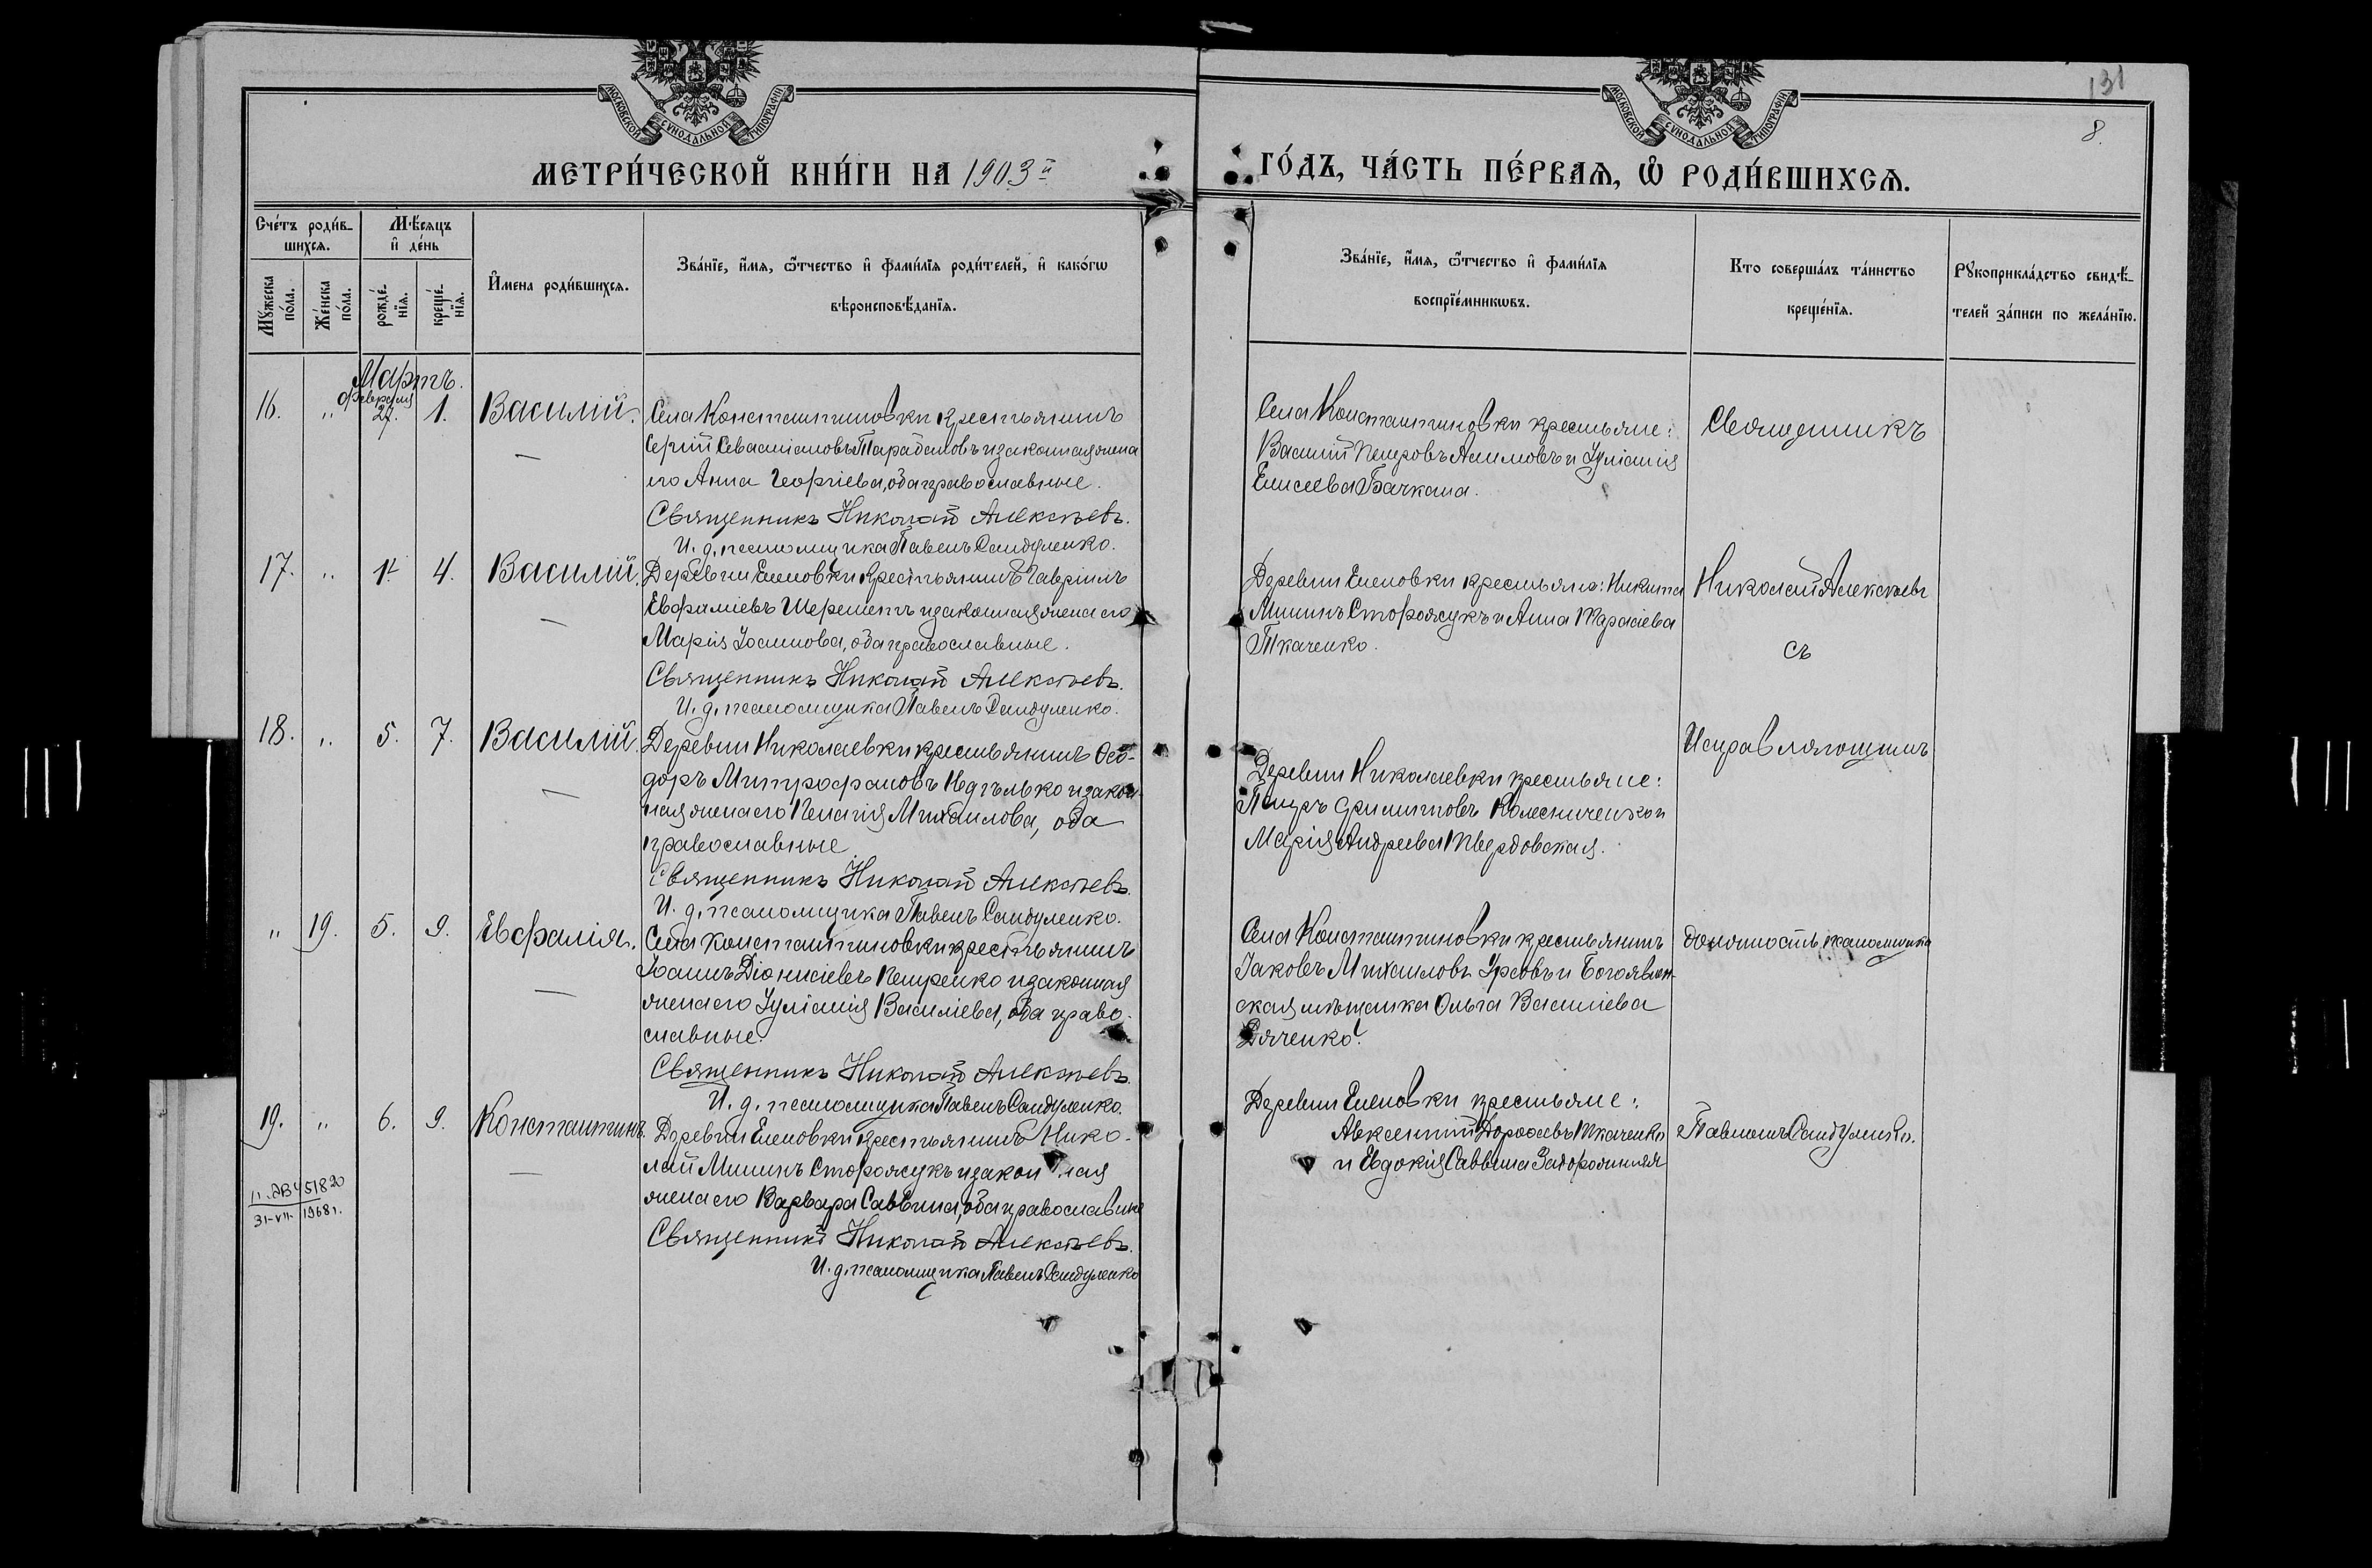 131
8.
МОСКОВСКОЙ СУНОДАЛЬНОЙ ТИПОГРАФІИ
МОСКОВСКОЙ СУНОДАЛЬНОЙ ТИПОГРАФІИ
МЕТРИ́ЧЕСКОЙ КНИ́ГИ НА 1903й
ГО́ДЪ, ЧА́СТЬ ПЕ́РВАѦ, Ѡ҆ РОДИ́ВШИХСѦ.
Сче́тъ роди́в-
шихсѧ.
Мѣ́сѧцъ
и҆ де́нь
Мꙋ́жеска по́ла.
Же́нска по́ла.
рожде́-
нїѧ.
креще́-
нїѧ.
И҆мена роди́вшихсѧ.
Зва́нїе, и҆́мѧ, ѻ҆́тчество и҆ фами́лїѧ роди́телей, и҆ како́гѡ
вѣроисповѣ́данїѧ.
Зва́нїе, и҆́мѧ, ѻ҆́тчество и҆ фами́лїѧ
воспрїе́мникѡвъ.
Кто соверша́лъ та́инство
креще́нїѧ.
Рꙋкоприкла́дство свидѣ́-
телей за́писи по жела́нїю.
Мартъ.
Февраля
16. " 27. 1. Василій.
Села Константиновки крестьянинъ
Сергій Севастіановъ Тарабановъ и законная жена
его Анна Георгіева, оба православные.
Священникъ Николай Алексѣевъ.
И. д. псаломщика Павелъ Сандуленко.
Села Константиновки крестьяне:
Василій Петровъ Алимовъ и Іуліанія
Елисеева Бачкала.
Священникъ
17. " 1. 4. Василій.
Деревни Еленовки крестьянинъ Гавріилъ
Евфиміевъ Шереметъ и законная жена его
Марія Іоаннова, оба православные.
Священникъ Николай Алексѣевъ.
И. д. псаломщика Павелъ Сандуленко.
Деревни Еленовки крестьяне: Никита
Мининъ Сторожукъ и Анна Тарасіева
Ткаченко.
Николай Алексѣевъ
съ
18. " 5. 7. Василій.
Деревни Николаевки крестьянинъ Ѳео-
доръ Митрофановъ Недѣлько и закон-
ная жена его Пелагія Михаилова, оба
православные.
Священникъ Николай Алексѣевъ.
И. д. псаломщика Павелъ Сандуленко.
Деревни Николаевки крестьяне:
Петръ Филипповъ Колесниченко и
Марія Андреева Твердовская.
Исправляющимъ
" 19. 5. 9. Евфалія.
Села Константиновки крестьянинъ
Іоаннъ Діонисіевъ Петренко и законная
жена его Іуліанія Василіева, оба право-
славные.
Священникъ Николай Алексѣевъ.
И. д. псаломщика Павелъ Сандуленко.
Села Константиновки крестьянинъ
Іаковъ Михаиловъ Урсовъ и Богоявлен-
ская мѣщанка Ольга Василіева
Дяченко.
должность псаломщика
19. " 6. 9. Константинъ.
Деревни Еленовки крестьянинъ Нико-
лай Мининъ Сторожукъ и законная
жена его Варвара Саввина, оба православные
Священникъ Николай Алексѣевъ.
И. д. псаломщика Павелъ Сандуленко
Деревни Еленовки крестьяне:
Авксентій Дороѳеевъ Ткаченко
и Евдокія Саввина Запорожняя
Павломъ Сандуленко.
451820
31-VII-1968г.